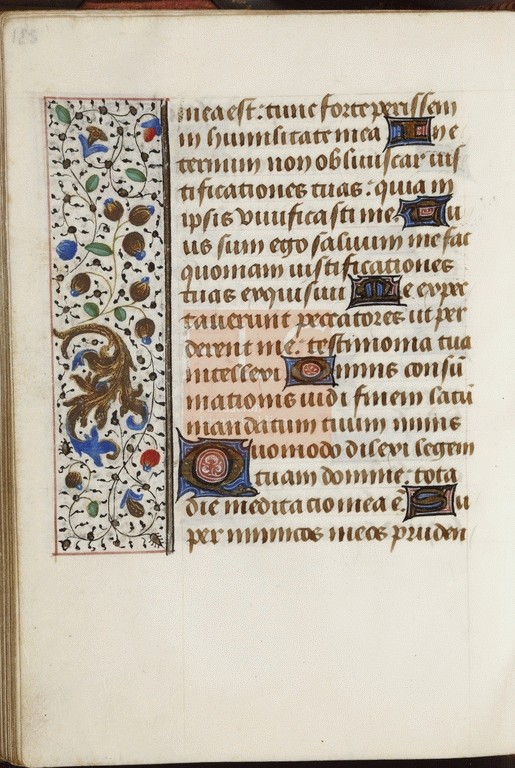 mea est: tunc forte perissem
in humilitate mea In e
ternum non obliviscar ius
tificationes tuas: quia in
ipsis vivificasti me Tu
us sum ego salvum me fac
quoniam iustificationes
tuas exquisivi Me expec
taverunt peccatores ut per
derent me: testimonia tua
intellexi Omnis consū
mationis vidi finem latū
mandatum tuum nimis
Quomodo dilexi legem
tuam domine: tota
die meditacio mea ē Su
per inimicos meos pruden